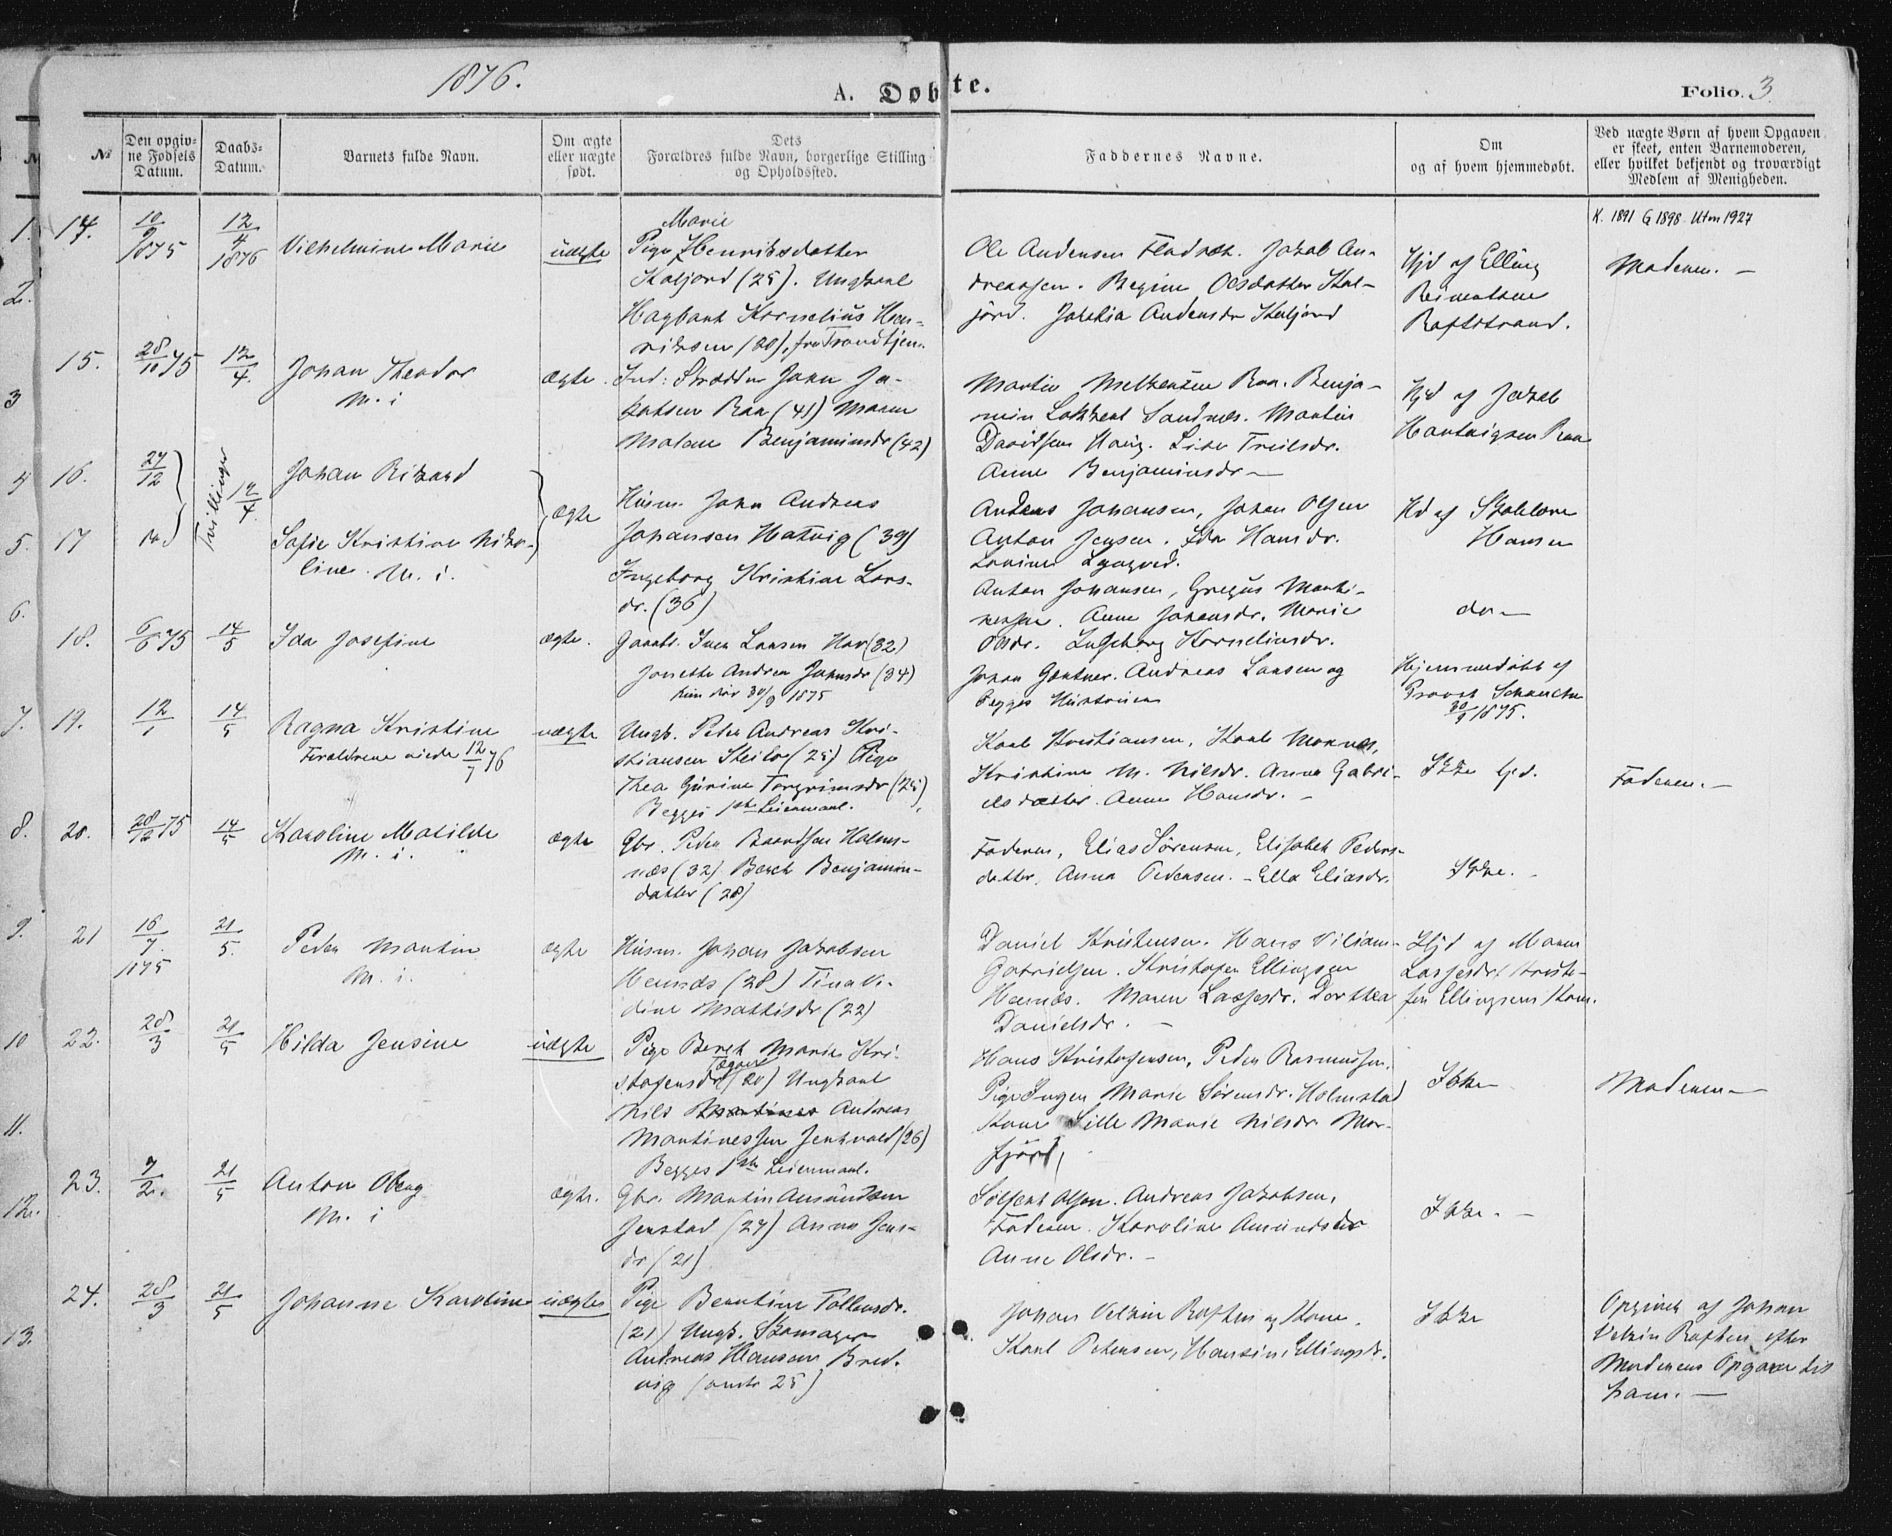 1876.
A. Døbte.
Folio. 3.
№
Den opgiv-
ne Fødsels
Datum.
Daabs-
Datum.
Barnets fulde Navn.
Om ægte
eller uægte
født.
Dets
Forældres fulde Navn, borgerlige Stilling
og Opholdssted.
Faddernes Navne.
Om
og af hvem hjemmedøbt.
Ved uægte Børn af hvem Opgaven
er skeet, enten Barnemoderen,
eller hvilket bekjendt og troværdigt
Medlem af Menigheden.
K. 1891 G 1898. Utm 1927
14.
10/9 1875
12/4 1876
Vilhelmine Marie
uægte
Marie
Pige Henriksdatter
Kaljord (25). Ungkarl
Hagbart Kornelius Hen-
riksen (20), fra Trondhjem.
Ole Andersen Fladsæt. Jakob An-
dreassen. Regine Olsdatter Kal-
jord. Andersdr Kaljord
Hjd af Elling
Reinertsen
Raftstrand.
Moderen. —
15.
28/10 75
12/4.
Johan Theodor
M. i
ægte.
Ind: Strædder John Ja-
kobsen Raa (41) Maren
Malene Benjaminsdr (42)
Martin Raa. Benja-
min Sandnes. Martin
Davidsen Lise Troilsdr.
Anne Benjaminsdr —
Hjd af Jakob
Hartvigsen Raa
16.
27/12
Tvillinger
12/4.
Johan Rikard
ægte
Husm. John Andreas
Johansen Hatvig (39)
Ingeborg Kristine Lars-
dr. (36)
Anders Johansen, Johan Olsen
Anton Jensen. Ida Hansdr.
Lovise Lyngved.
Hd af Skolelære
Hansen
17
do
Sofie Kristine Niko-
line. M. i.
Anton Johansen, Gregus Marti-
nessen. Anne Johansdr. Marie
Olsdr. Ingeborg Korneliusdr.
do —
18.
6/6 75
14/5
Ida Josefine
ægte.
Gaardb. Iver Larsen Hov (32)
Jonette Andrea Johnsdr (34)
hun død 30/9 1875
Johan Gærtner. Andreas Larsen og
Begges Hustruer
Hjemmedøbt af
Provst
30/9 1875.
19.
12/1
14/5
Ragna Kristine
Forældrene viede 12/7 76
uægte
Ungk. Peter Andreas Kri-
stiansen Steilo (25) Pige
Thea Gurine Torgrimsdr (25)
Begges 1ste Leiermaal.
Karl Kristiansen, Karl
Kristine M. Nilsdr. Anna Gabri-
elsdatter. Anne Hansdr. —
Ikke hjd.
Faderen. —
20.
28/12 75
14/5
Karoline Matilde
M. i.
ægte
Gbr. Peder Baardsen Holms-
næs (32) Berit Benjamin-
datter (28)
Faderen, Elias Sørensen, Elisabet Peders-
datter, Anna Pedersen. - Ella Eliasdr.
Ikke. -
21
16/7. 1875
21/5.
Peder Martin
M. i.
ægte
Husm. Johan Jakobsen
Hennæs (28) Tina Ki-
dine Mattisdr (22)
Daniel Kristensen. Hans Viliam-
Gabrielsen. Kristofer Ellingsen
Hennæs. Maren Lassesdr. Dorthea
Danielsdr. —
Hjd af Maren
Lassesdr. Kristo-
fer Ellingsens Kone.
22.
28/3
21/5
Hilda Jensine
uægte
Pige Berit Marie Kri-
stofersdr (20) Ungkarl
Nils Martines Andreas
Martinessen Jenkvold (26)
Begges 1ste Leiermaal.
Hans Kristofersen. Peder Rasmussen.
Pige Inger Marie Sørensdr. Holmstad
Kone Sille Marie Nilsdr Mor-
fjord,
Ikke
Moderen —
23.
7/2.
21/5
Anton Oberg
M. i
ægte.
Gbr. Martin Amundsen
Jenstad (27) Anna Jens-
dr (21)
Sølfest Olsen. Andreas Jakobsen,
Faderen. Karoline Amundsdr
Anne Olsdr. —
Ikke. -
24.
28/3
21/5
Johanne Karoline
uægte
Pige Berntine Tollevsdr.
(21) Ungk. Skomager
Andreas Hansen Bred-
vig (omtr 25)
Johan Velzin Raften og Kone.
Karl Petersen, Hansine Ellingsdr.
Ikke
Opgivet af Johan
Velzin Raften efter
Moderens Opgave til
ham. —
1.
2.
3
4
5.
6.
7.
8.
9.
10
11.
12.
13.